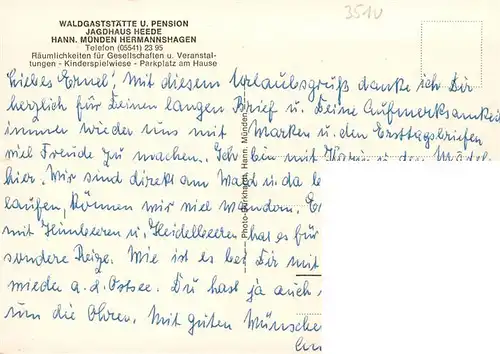 WALDGASTSTÄTTE U. PENSION
JAGDHAUS HEEDE
HANN. MÜNDEN HERMANNSHAGEN
Telefon (05541) 23 95
Räumlichkeiten für Gesellschaften u. Veranstal-
tungen - Kinderspielwiese - Parkplatz am Hause
351U
Photo-Burkhardt, Hann. Münden
Liebes Ernel! Mit diesem Urlaubsgruß danke ich Dir
herzlich für Deinen langen Brief u. Deine Aufmerksamkeit
immer wieder uns mit Marken u. den Ersttagsbriefen
viel Freude zu machen. Ich bin mit Karin u. den Mädeln
hier. Wir sind direkt am Wald u. da
laufen, können wir viel wandern.
mit Himbeeren u. Heidelbeeren hat es für
sondere Reize. Wie ist es bei Dir mit
wieder a. d. Ostsee. Du hast ja auch
um die Ohren. Mit guten Wünsche